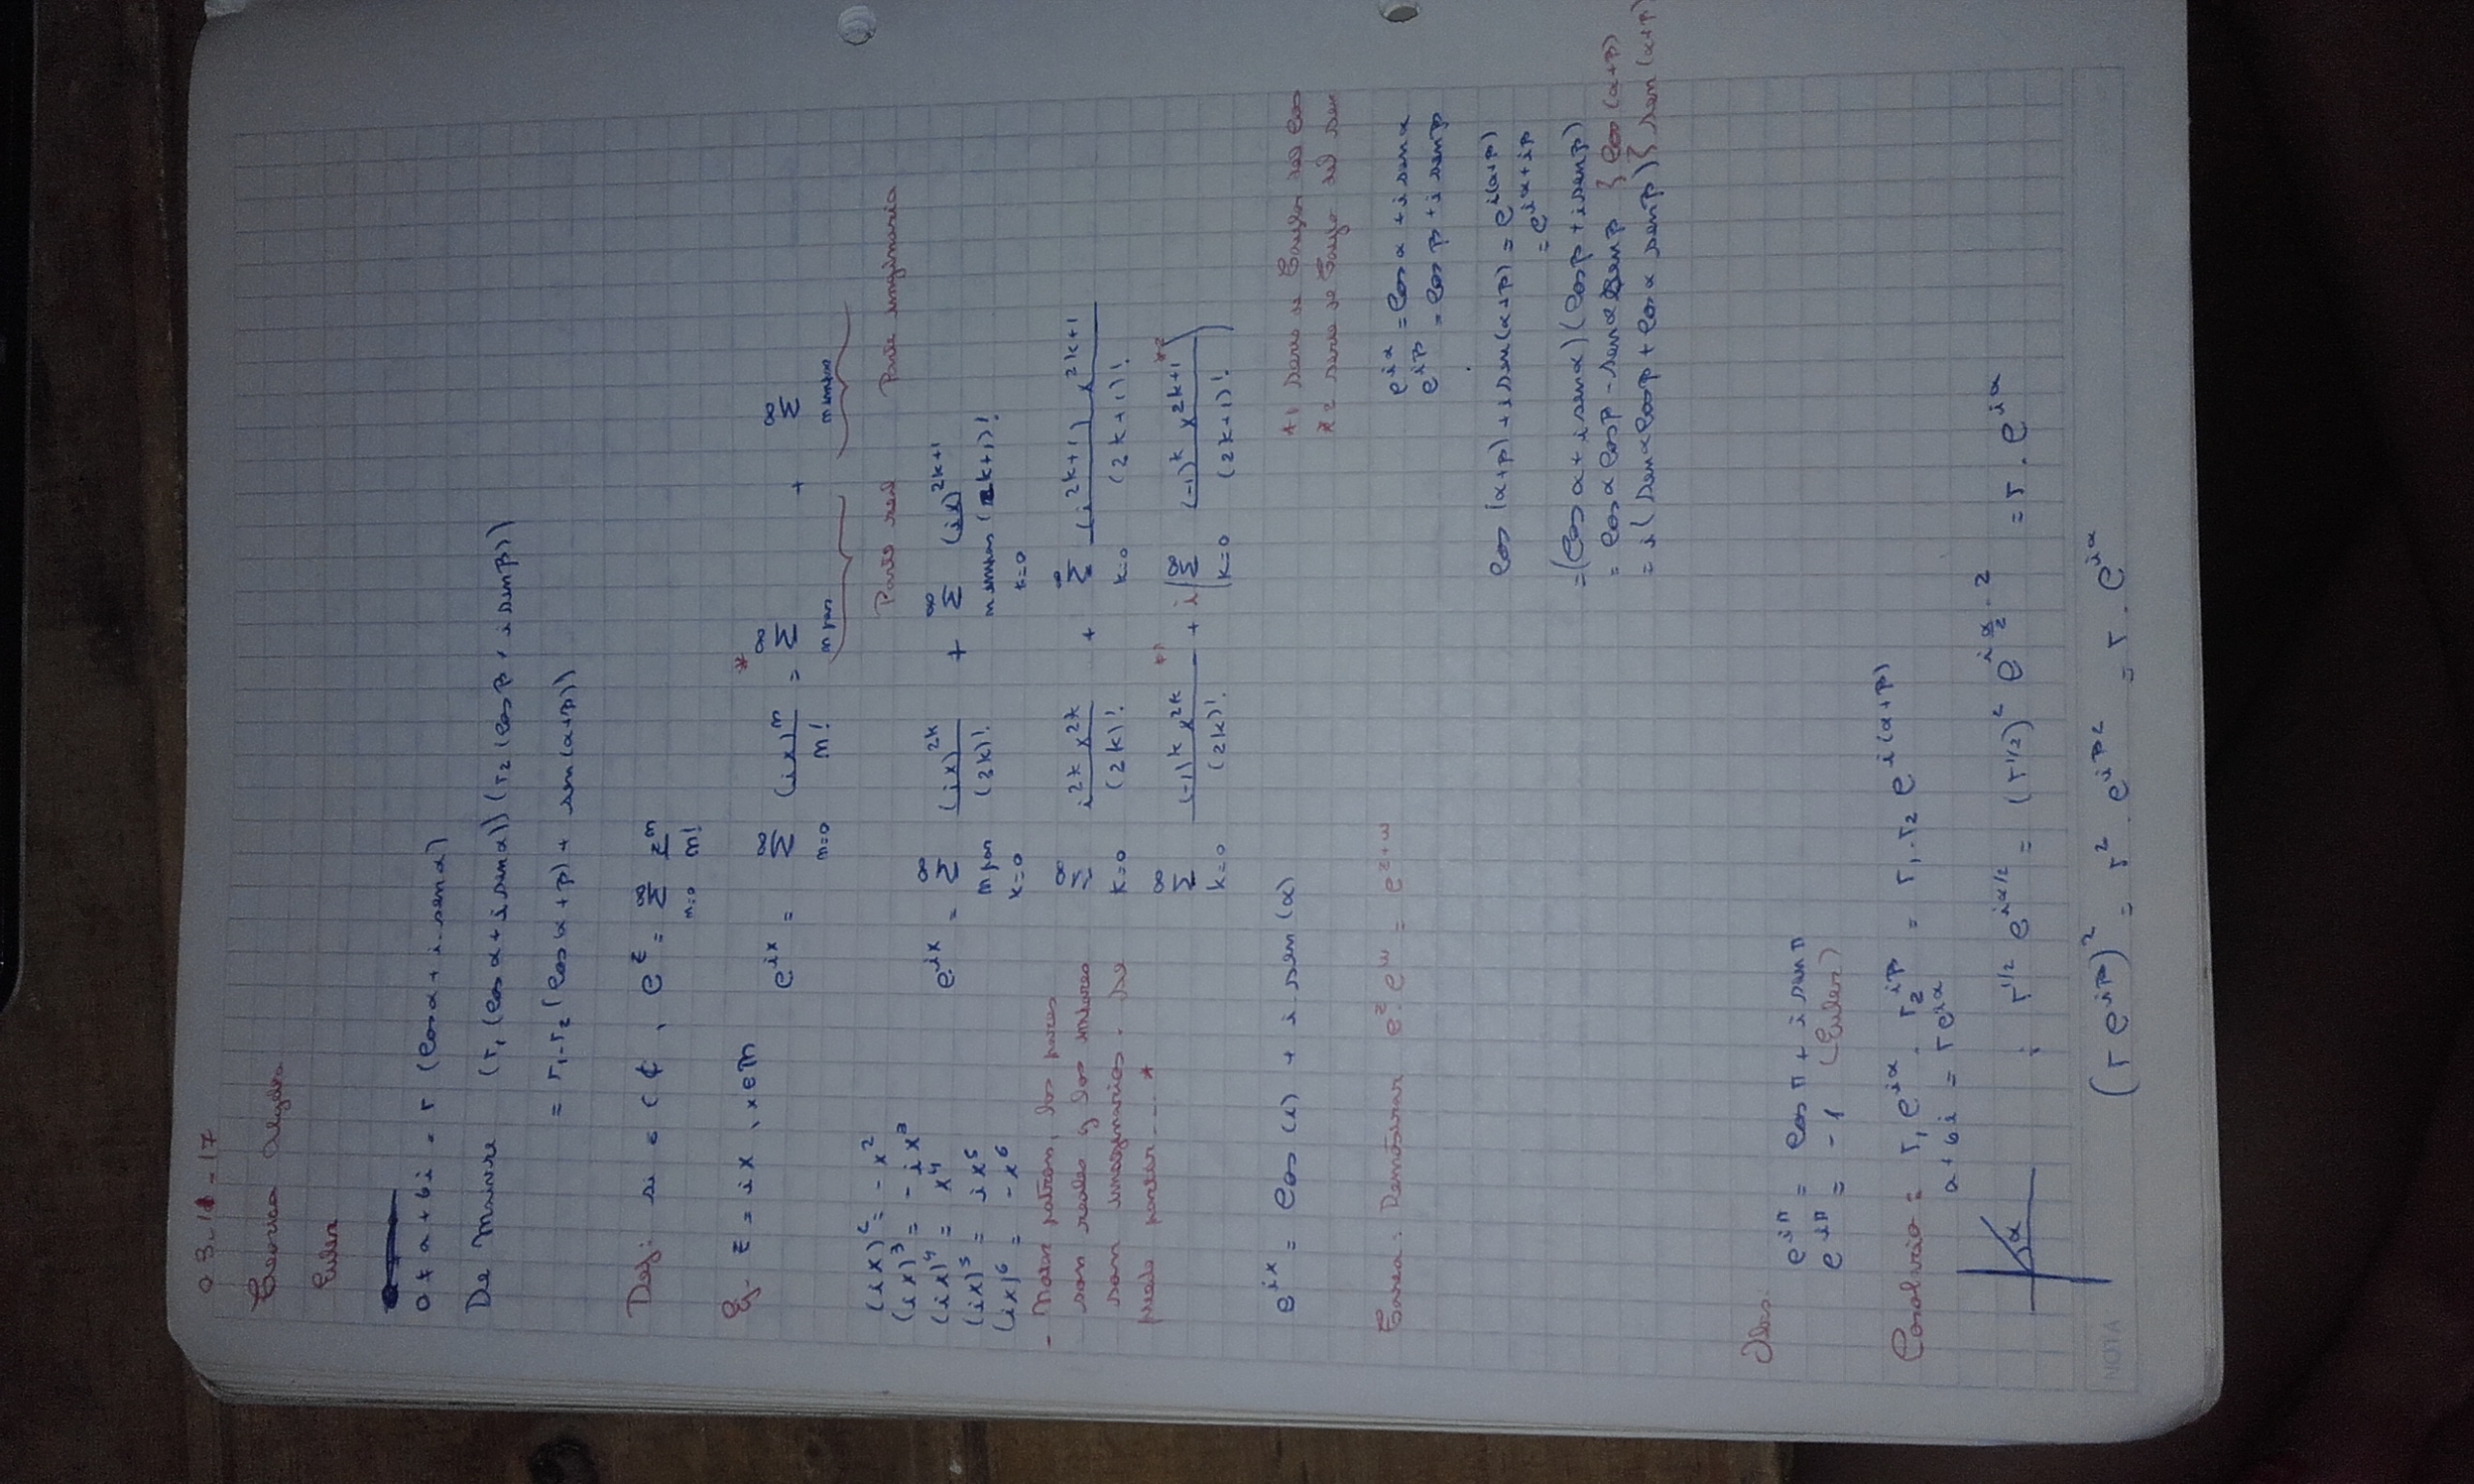 03-11-17
Teorica Algebra
Euler
0 ≠ a + bi = r (Cos α + i . sen α)
De Moivre (r₁ (Cos α + i sen α)) (r₂ (Cos β + i sen β))
= r₁ . r₂ (Cos (α + β) + sen (α+β))
Def: si ∈ ℂ , e^z = Σ_{n=0}^∞ z^n / n!
Ej. z = ix , x ∈ ℝ
e^{ix} = Σ_{n=0}^∞ (ix)^n / n! = * Σ_{n par}^∞ + Σ_{n impar}^∞
Parte real Parte imginaria
(ix)² = - x²
(ix)³ = - i x³
(ix)⁴ = x⁴
(ix)⁵ = i x⁵
(ix)⁶ = - x⁶
e^{ix} = Σ_{n par k=0}^∞ (ix)^{2k} / (2k)! + Σ_{n impar k=0}^∞ (ix)^{2k+1} / (2k+1)!
- Notar patron, los pares
son reales y los impares
son imaginarios. Se
puede partir ... *
Σ_{k=0}^∞ i^{2k} x^{2k} / (2k)! + Σ_{k=0}^∞ (i^{2k+1}) x^{2k+1} / (2k+1)!
Σ_{k=0}^∞ (-1)^k x^{2k} / (2k)! *1 + i ( Σ_{k=0}^∞ (-1)^k x^{2k+1} / (2k+1)! ) *2
e^{ix} = Cos (i) + i . sen (α)
*1 serie de Taylor del Cos
*2 serie de Taylo del sen
Tarea: Demostrar e^z e^w = e^{z+w}
e^{iα} = Cos α + i sen α
e^{iβ} = Cos β + i sen β
Cos (α+β) + i sen (α+β) = e^{i(α+β)}
= e^{iα + iβ}
= (Cos α + i sen α) (Cos β + i sen β)
= Cos α Cos β - sen α sen β } Cos (α+β)
= i ( sen α Cos β + Cos α sen β ) } sen (α+β)
Obs.
e^{iπ} = Cos π + i sen π
e^{iπ} = - 1 (Euler)
Corolario = r₁ e^{iα} . r₂^{iβ} = r₁ . r₂ e^{i(α+β)}
a + bi = r e^{iα}
α
: r^{1/2} e^{iα/2} = (r^{1/2})² e^{i α/2 . 2} = r . e^{iα}
(r e^{iβ})² = r² . e^{iβ2} = r . e^{iα}
NOTA